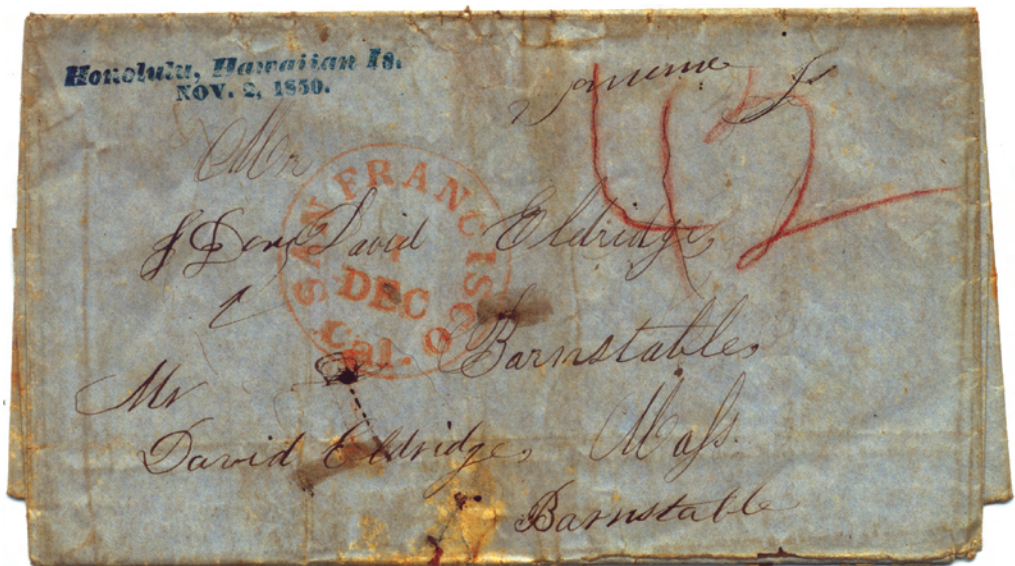 Honolulu, Hawaiian Is.
NOV. 2, 1850.
42
Mr
SAN FRANCISCO
1
DEC
Cal.
David Eldridge,
Barnstable,
Mr
David Eldridge, Mass.
Barnstable